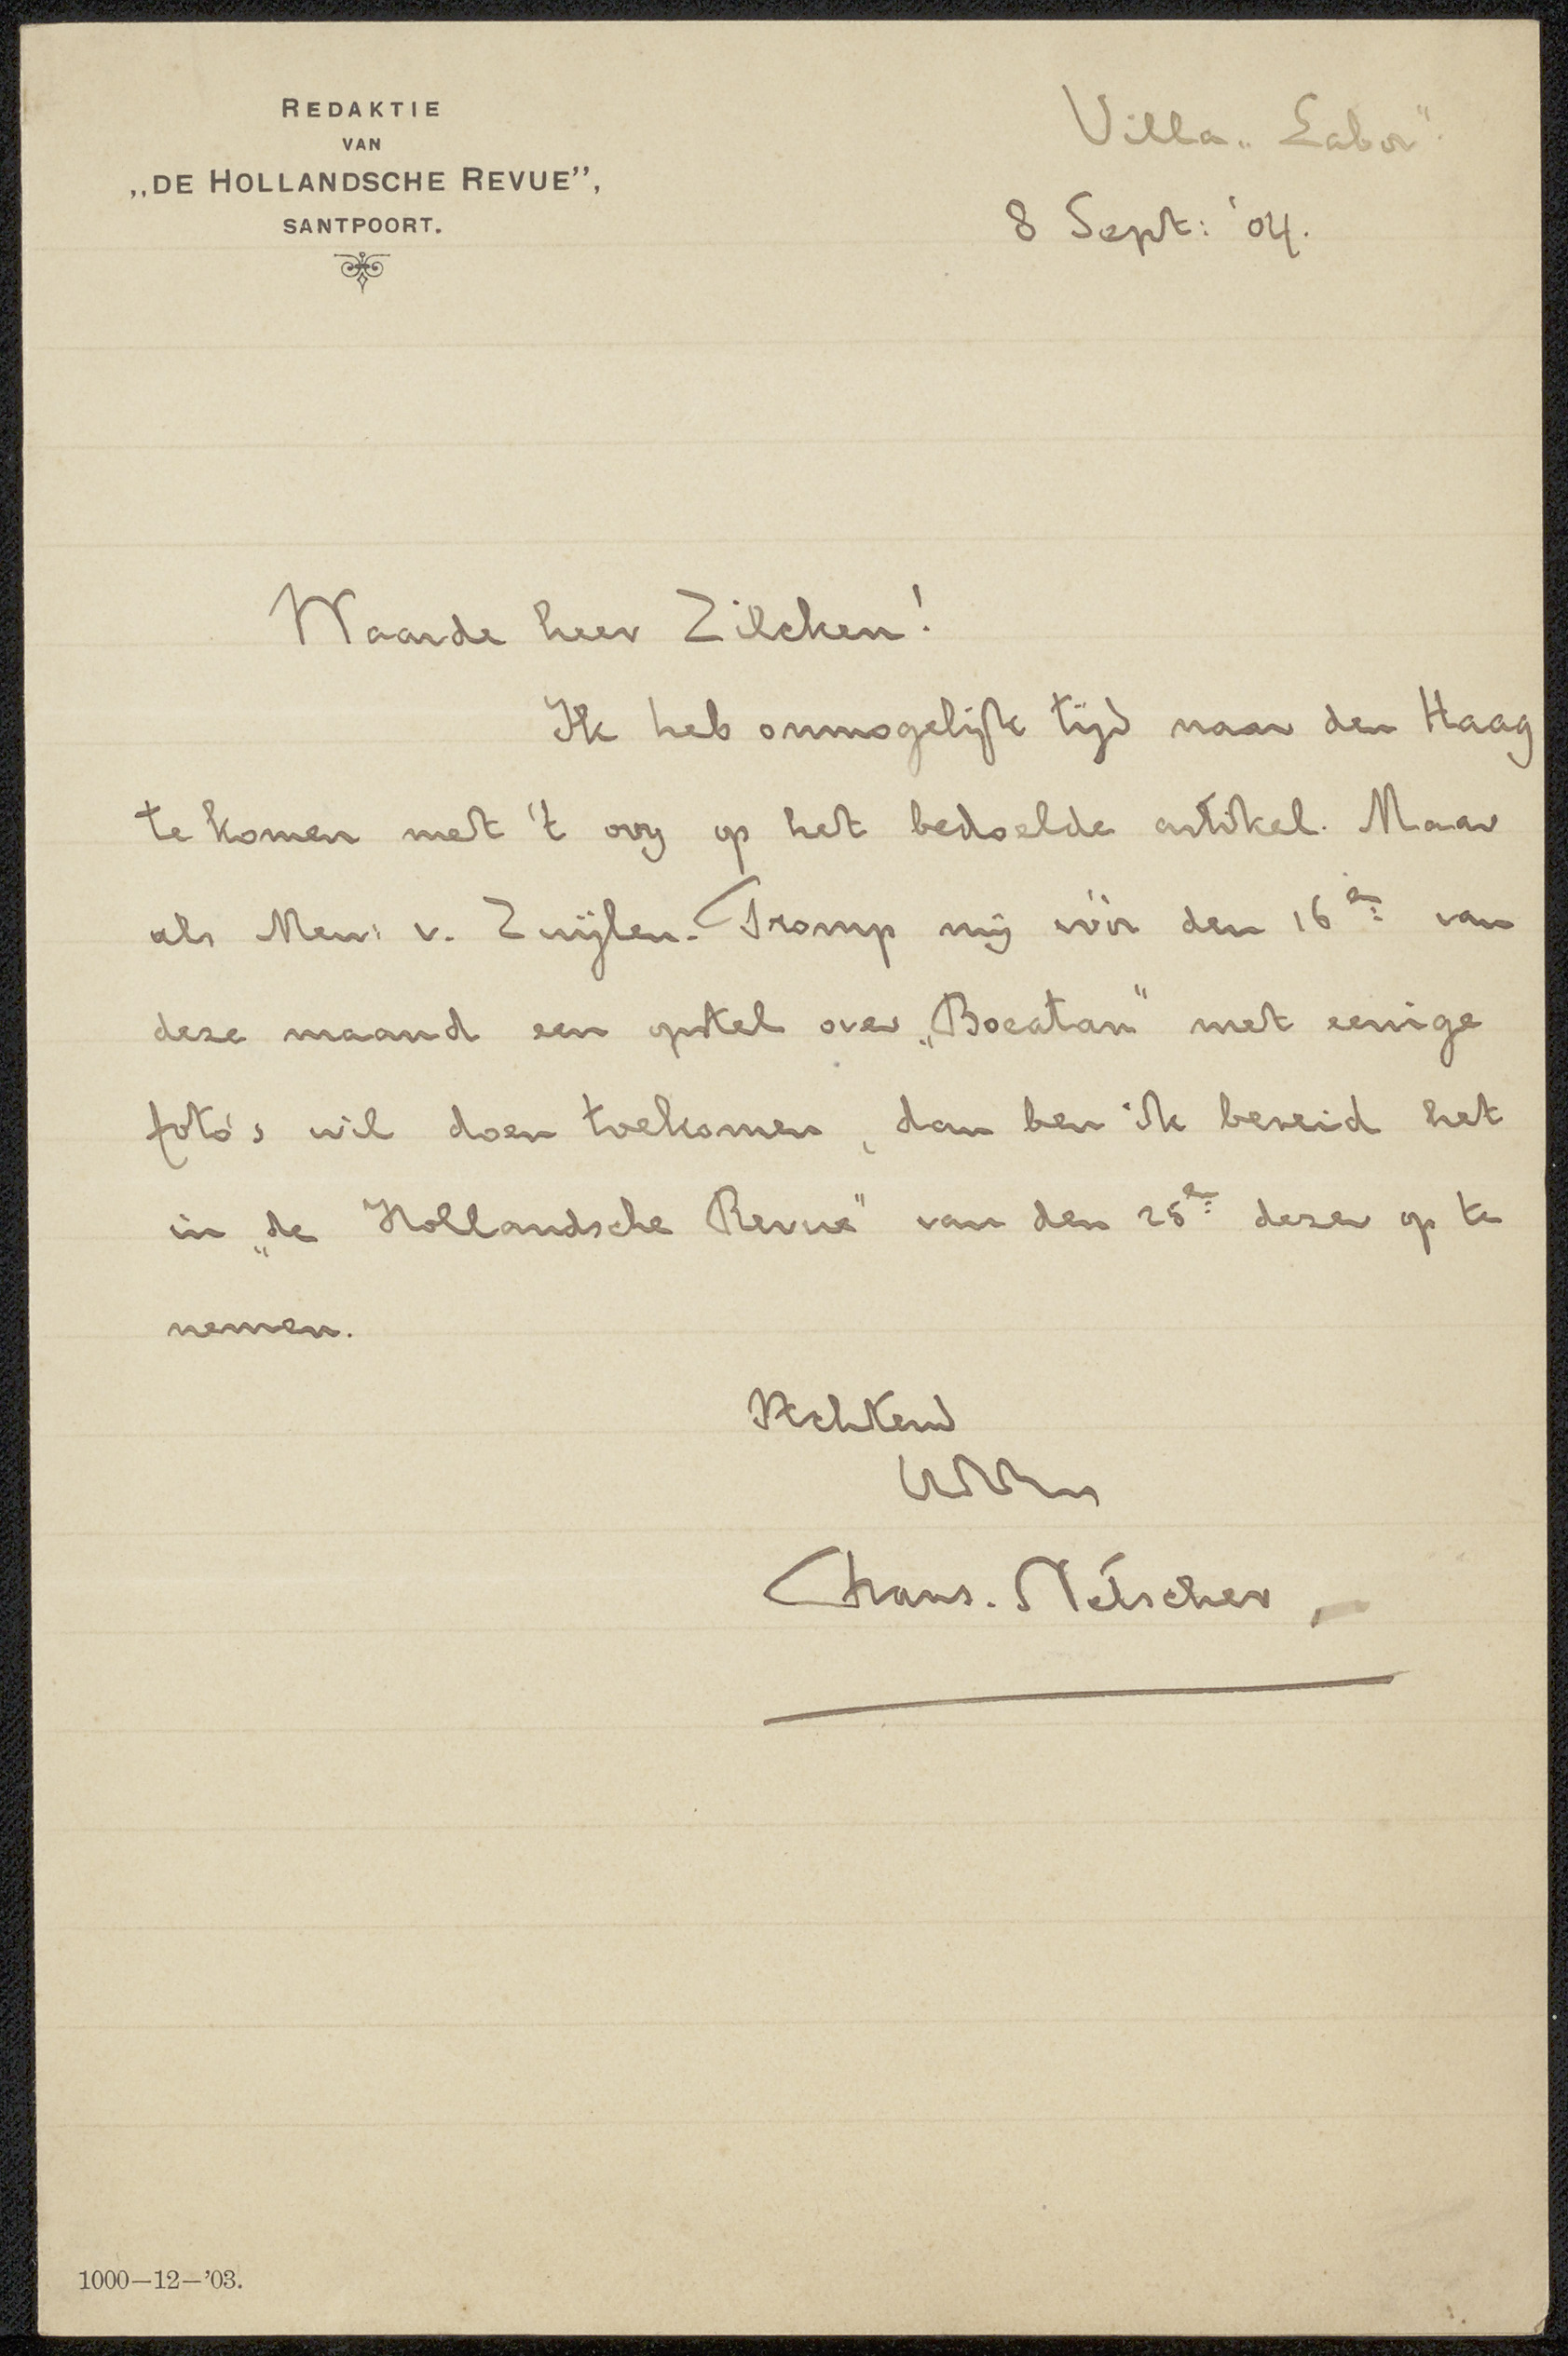 REDAKTIE
VAN
„DE HOLLANDSCHE REVUE",
SANTPOORT.
Villa „Labor".
8 Sept: '04.
Waarde heer Zilcken!
Ik heb onmogelijk tijd naar den Haag
te komen met 't oog op het bedoelde artikel. Maar
als Mevr: v. Zuijlen-Tromp mij vóór den 16en: van
deze maand een opstel over „Boeatan" met eenige
foto's wil doen toekomen, dan ben ik bereid het
in „de Hollandsche Revue" van den 25en: dezer op te
nemen.
Achtend
Frans. Netscher,
1000—12—'03.